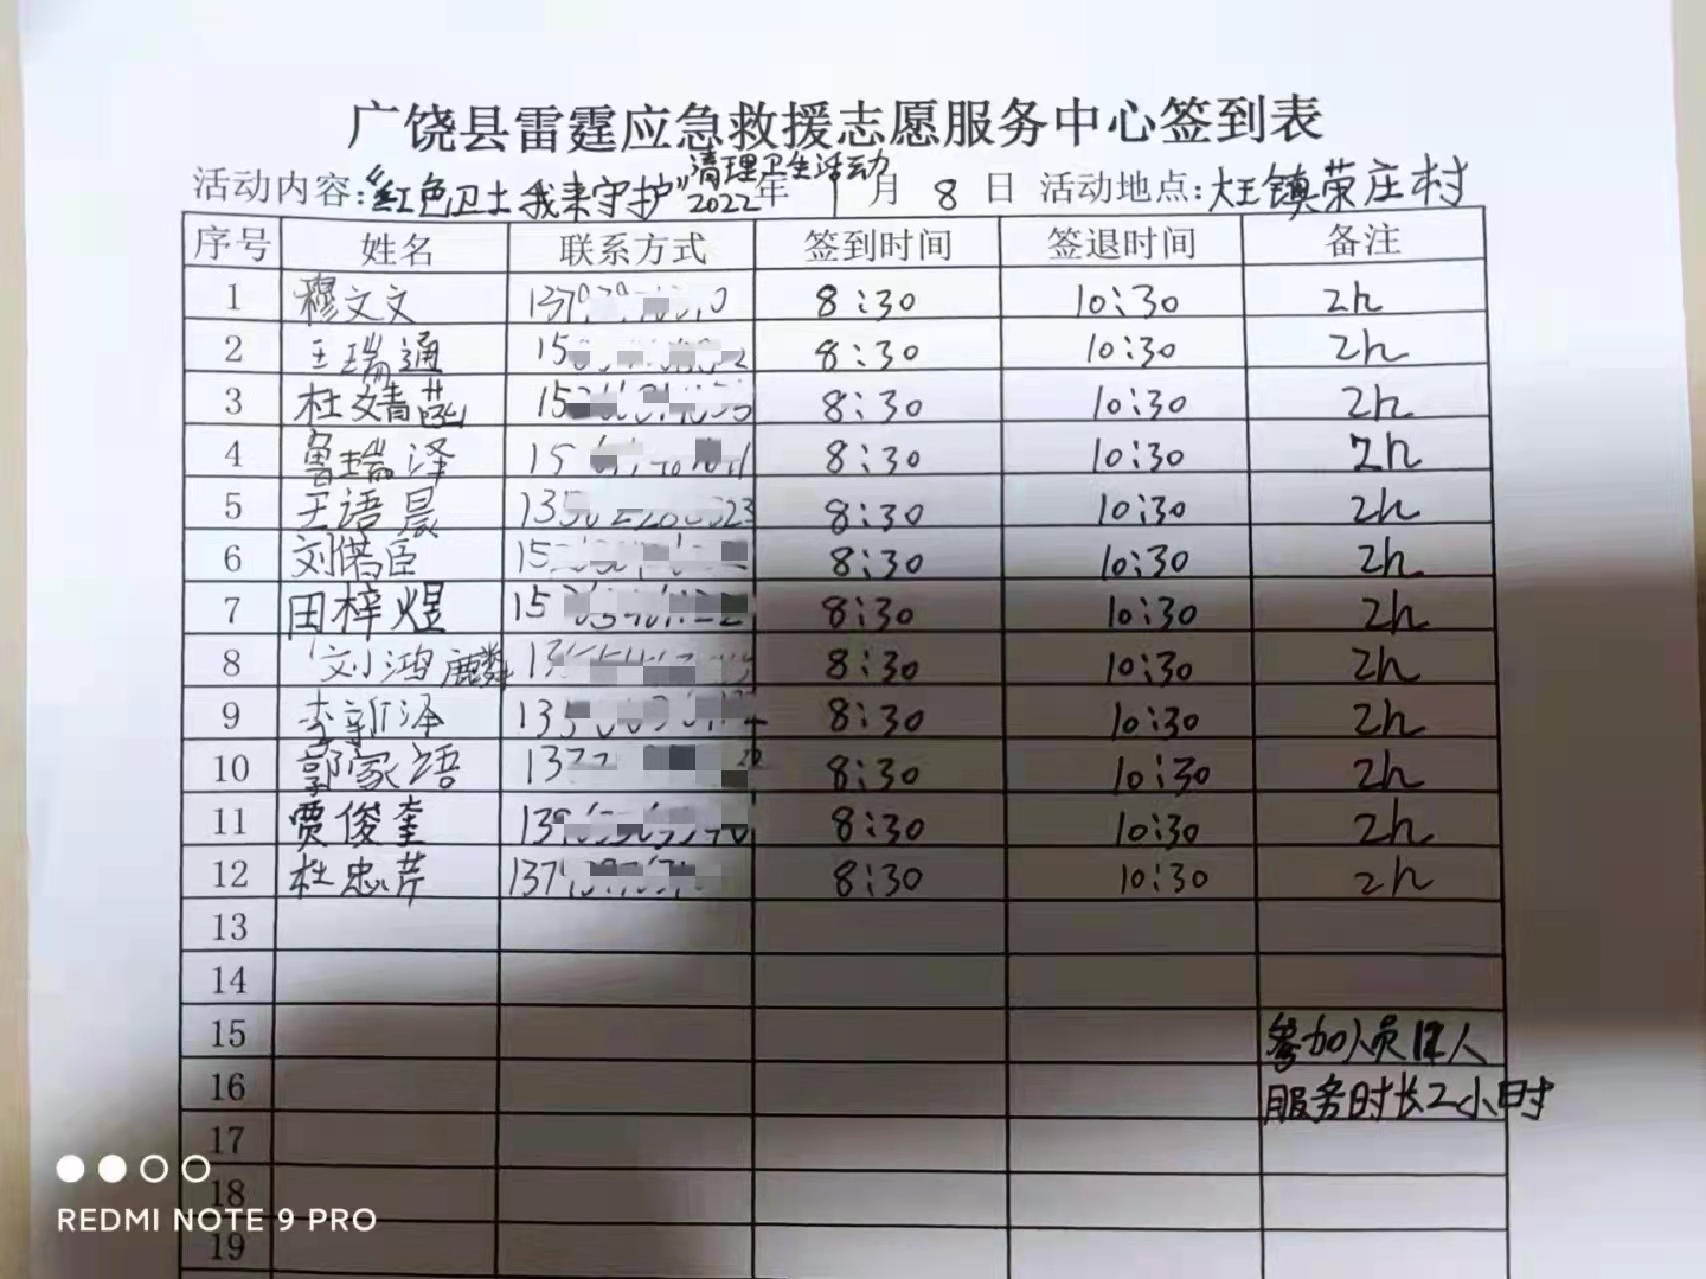 广饶县雷霆应急救援志愿服务中心签到表
清理卫生活动
活动内容:“红色卫士我来守护” 2022年 1月 8日 活动地点:大王镇荣庄村
序号 姓名 联系方式 签到时间 签退时间 备注
1 穆文文 137 8:30 10:30 2h
2 王瑞通 15 8:30 10:30 2h
3 杜婧菡 15 8:30 10:30 2h
4 鲁瑞泽 15 8:30 10:30 2h
5 王语晨 13 8:30 10:30 2h
6 刘偌臣 15 8:30 10:30 2h
7 田梓煜 15 8:30 10:30 2h
8 刘鸿麟 13 8:30 10:30 2h
9 李新泽 13 8:30 10:30 2h
10 郭家语 13 8:30 10:30 2h
11 贾俊奎 13 8:30 10:30 2h
12 杜忠芹 137 8:30 10:30 2h
13
14
15 参加人员12人
16 服务时长2小时
17
18
19
REDMI NOTE 9 PRO